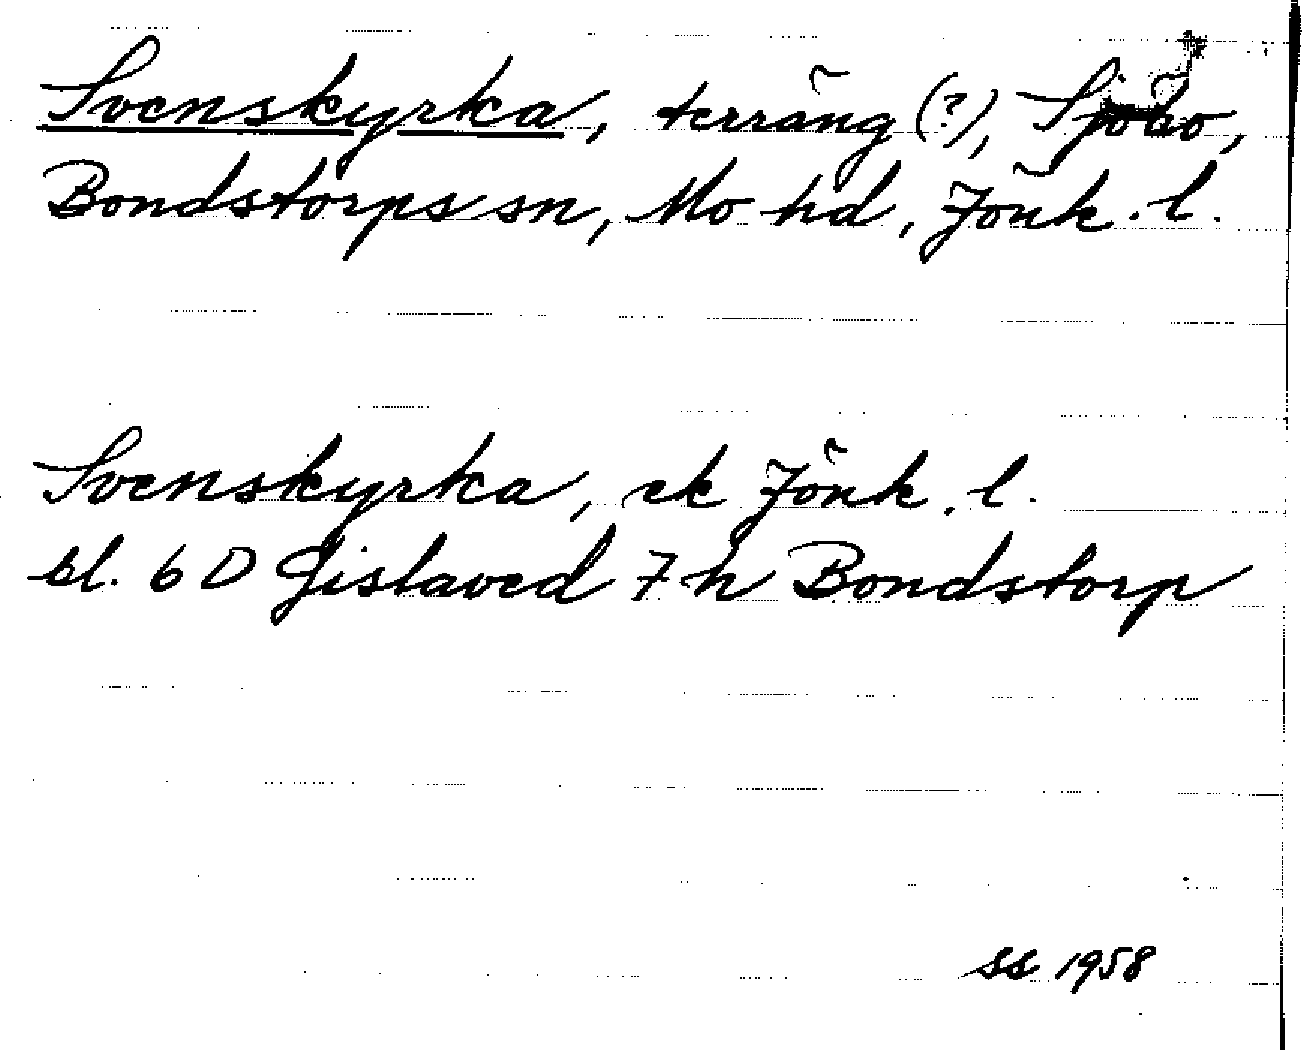 Svenskyrka, terräng (?), Sjöbo,
Bondstorps sn, Mo hd, Jönk. l.
Svenskyrka, ek Jönk. l.
bl. 6 D Gislaved 7 h Bondstorp
SS 1958